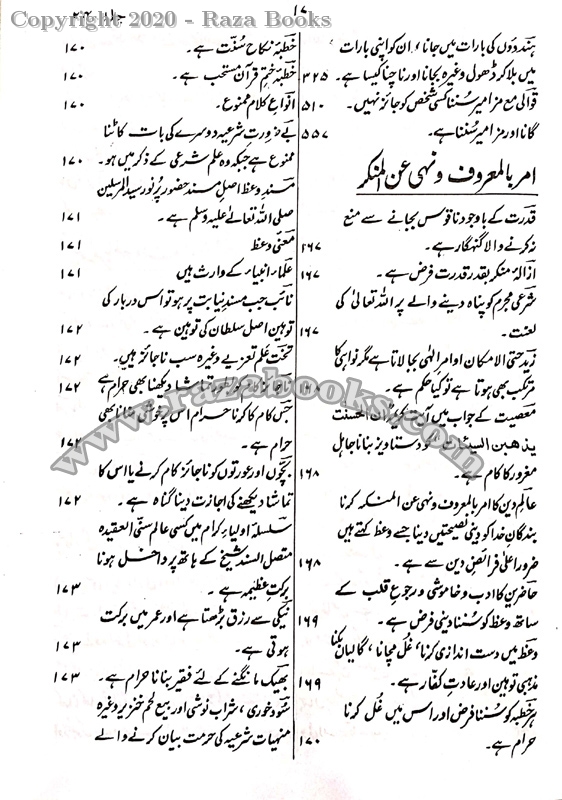 Copyright 2020 - Raza Books
۱۷
جلد ۲۴
ہندوؤں کی بارات میں جانا، ان کو اپنی بارات
میں بلا کر ڈھول وغیرہ بجانا اور ناچنا کیسا ہے۔ ۳۲۵
قوالی مع مزامیر سننا کسی شخص کو جائز نہیں۔ ۵۱۰
گانا اور مزامیر سننا ہے۔ ۵۵۷
امر بالمعروف ونہی عن المنکر
قدرت کے باوجود ناقوس بجانے سے منع
نہ کرنے والا گنہگار ہے۔ ۱۶۷
ازالۂ منکر بقدرِ قدرت فرض ہے۔ ۱۶۷
شرعی مجرم کو پناہ دینے والے پر اللہ تعالیٰ کی
لعنت۔ ۱۶۷
زید حتی الامکان اوامرِ الٰہی بجا لاتا ہے مگر نواہی کا
مرتکب بھی ہوتا ہے تو کیا حکم ہے۔ ۱۶۸
معصیت کے جواب میں آیت کریمہ ان الحسنٰت
یذھبن السیئات کو دستاویز بنانا جاہل
مغرور کا کام ہے۔ ۱۶۸
عالمِ دین کا امر بالمعروف ونہی عن المنکر کرنا
بندگانِ خدا کو دینی نصیحتیں دینا جسے وعظ کہتے ہیں
ضرور اعلیٰ فرائضِ دین سے ہے۔ ۱۶۸
حاضرین کا ادب وخاموشی ورجوعِ قلب کے
ساتھ وعظ کو سننا دینی فرض ہے۔ ۱۶۹
وعظ میں دست اندازی کرنا، غُل مچانا، گالیاں بکنا
مذہبی توہین اور عادتِ کفار ہے۔ ۱۶۹
ہر خطبہ کو سننا فرض اور اس میں غُل کرنا
حرام ہے۔ ۱۷۰
خطبۂ نکاح سنّت ہے۔ ۱۷۰
خطبۂ ختم قرآن مستحب ہے۔ ۱۷۰
انواعِ کلام ممنوع۔ ۱۷۰
بے ضرورتِ شرعیہ دوسرے کی بات کاٹنا
ممنوع ہے جبکہ وہ علمِ شرعی کے ذکر میں ہو۔ ۱۷۰
مسندِ وعظ اصل مسند حضور پُرنور سید المرسلین
صلی اللہ تعالیٰ علیہ وسلم ہے۔ ۱۷۱
معنیٔ وعظ ۱۷۱
علماء انبیاء کے وارث ہیں ۱۷۱
نائب جب مسندِ نیابت پر ہو تو اس دربار کی
توہین اصل سلطان کی توہین ہے۔ ۱۷۲
تخت علم تعزیے وغیرہ سب ناجائز ہیں۔ ۱۷۲
ناجائز کام کو بطور تماشا دیکھنا بھی حرام ہے ۱۷۲
جس کام کا کرنا حرام اس پر خوشی منانا بھی
حرام ہے۔ ۱۷۲
بچّوں اور عورتوں کو ناجائز کام کرنے یا اس کا
تماشا دیکھنے کی اجازت دینا گناہ ہے۔ ۱۷۲
سلسلۂ اولیاءِ کرام میں کسی عالم سنّی العقیدہ
متصل السند شیخ کے ہاتھ پر داخل ہونا
برکتِ عظیمہ ہے۔ ۱۷۳
نیکی سے رزق بڑھتا ہے اور عمر میں برکت
ہوتی ہے۔ ۱۷۳
بھیک مانگنے کے لئے فقیر بنانا حرام ہے۔ ۱۷۳
سُود خوری، شراب نوشی اور بیع لحم خنزیر وغیرہ
منہیاتِ شرعیہ کی حرمت بیان کرنے والے
www.razabooks.com